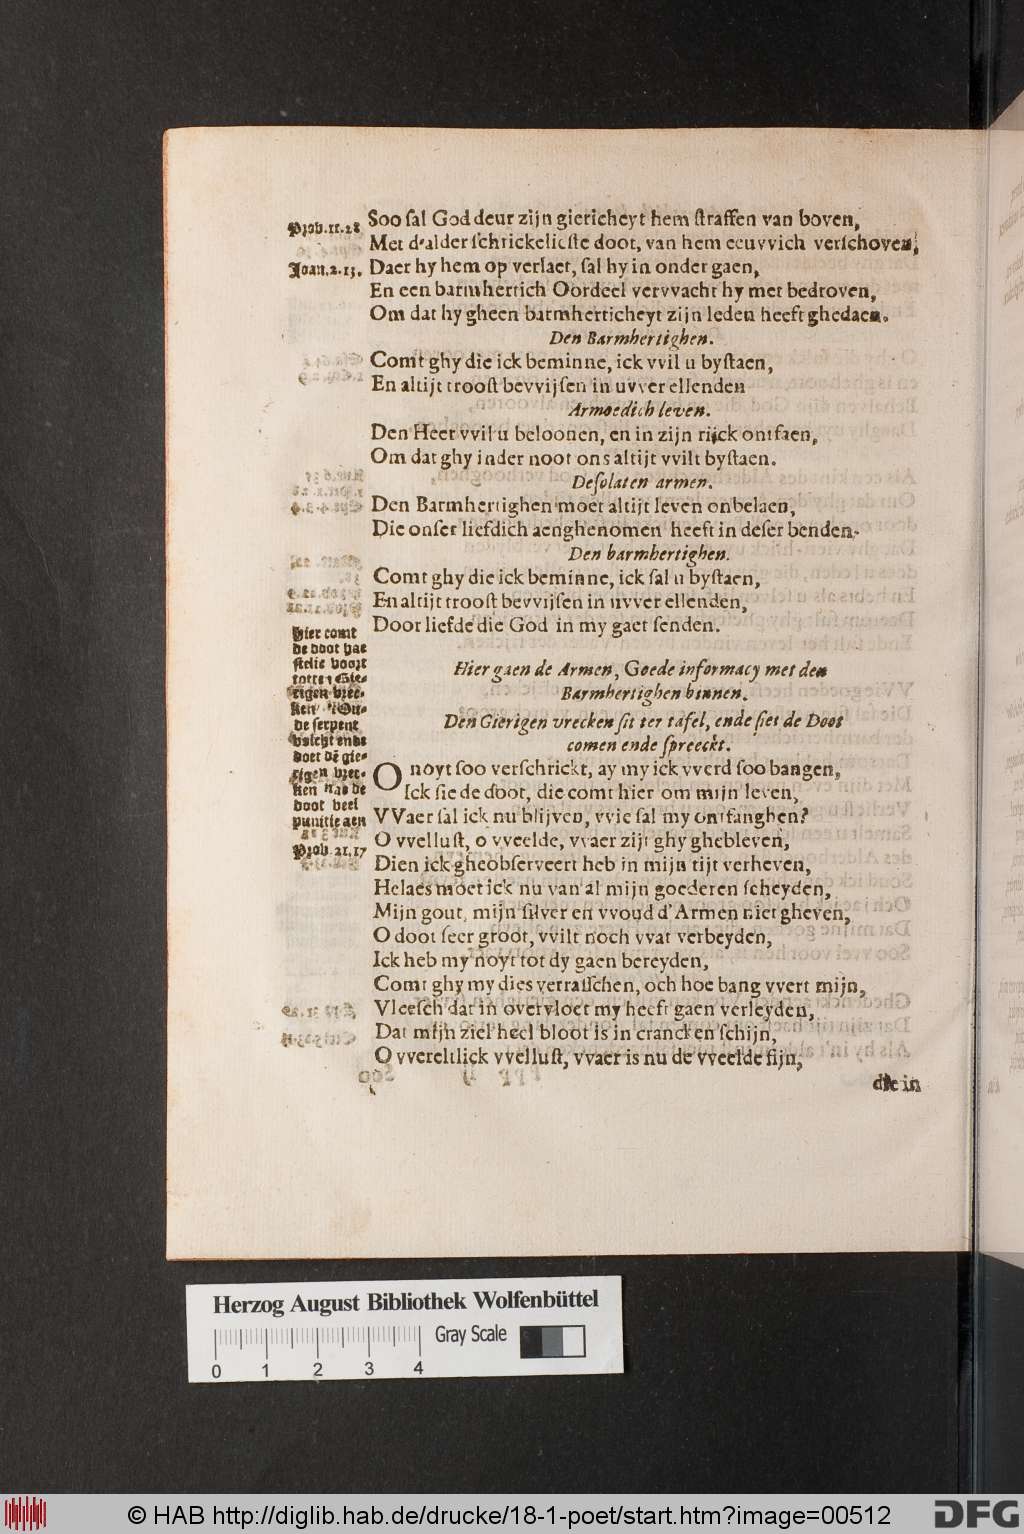 Prov. 11. 28
Soo sal God deur zijn giericheyt hem straffen van boven,
Met d'alder schrickelicste doot, van hem eeuvvich verschoven,
Joan. 2. 13.
Daer hy hem op verlaet, sal hy in onder gaen,
En een barmhertich Oordeel vervvacht hy met bedroven,
Om dat hy gheen barmherticheyt zijn leden heeft ghedaen.
Den Barmhertighen.
Comt ghy die ick beminne, ick vvil u bystaen,
En altijt troost bevvijsen in uvver ellenden
Armoedich leven.
Den Heer vvil u beloonen, en in zijn rijck ontfaen,
Om dat ghy inder noot ons altijt vvilt bystaen.
Desolaten armen.
Den Barmhertighen moet altijt leven onbelaen,
Die onser liefdich aenghenomen heeft in deser benden.
Den barmhertighen.
Comt ghy die ick beminne, ick sal u bystaen,
En altijt troost bevvijsen in uvver ellenden,
Door liefde die God in my gaet senden.
Hier comt
de doot hae
stelic voort
totten Gie-
rigen vrec-
ken
de serpent
ende
doet dē gie-
rigen vrec-
ken nae de
doot veel
punitie aen
Prov. 21. 17
Hier gaen de Armen, Goede informacy met den
Barmhertighen binnen.
Den Gierigen vrecken sit ter tafel, ende siet de Doot
comen ende spreeckt.
O noyt soo verschrickt, ay my ick vverd soo bangen,
Ick sie de doot, die comt hier om mijn leven,
VVaer sal ick nu blijven, vvie sal my ontfanghen?
O vvellust, o vveelde, vvaer zijt ghy ghebleven,
Dien ick gheobserveert heb in mijn tijt verheven,
Helaes moet ick nu van al mijn goederen scheyden,
Mijn gout, mijn silver en vvoud d'Armen niet gheven,
O doot seer groot, vvilt noch vvat verbeyden,
Ick heb my noyt tot dy gaen bereyden,
Comt ghy my dies verrasschen, och hoe bang vvert mijn,
Vleesch dat in overvloet my heeft gaen verleyden,
Dat mijn ziel heel bloot is in crancken schijn,
O vvereltlick vvellust, vvaer is nu de vveelde sijn,
die in
Herzog August Bibliothek Wolfenbüttel
Gray Scale
0 1 2 3 4
© HAB http://diglib.hab.de/drucke/18-1-poet/start.htm?image=00512
DFG